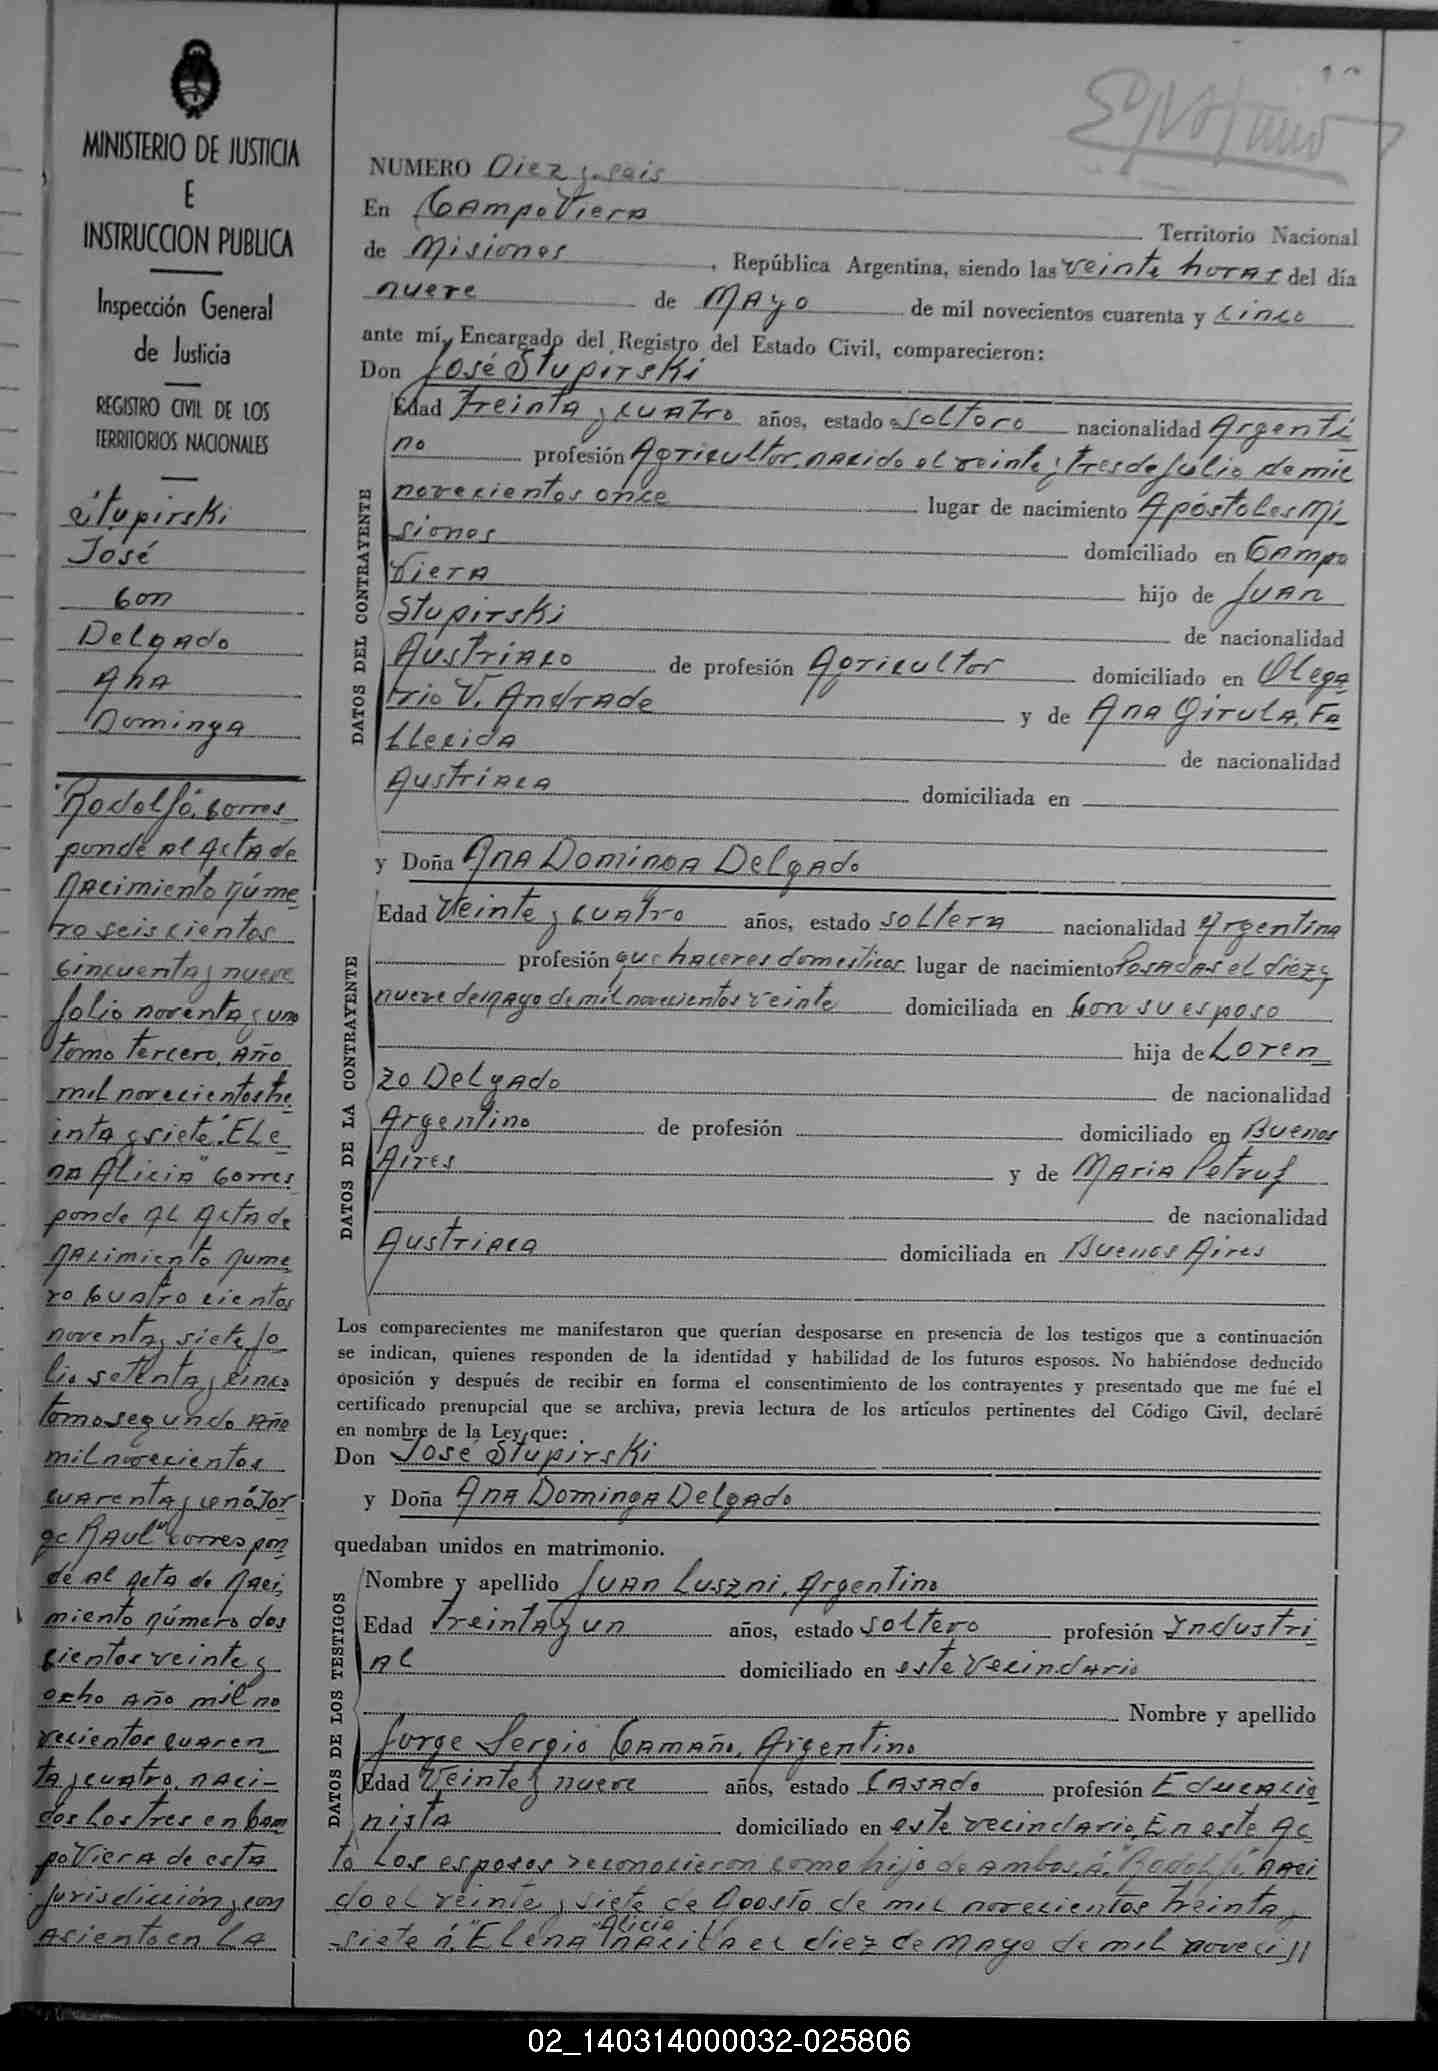 MINISTERIO DE JUSTICIA
E
INSTRUCCION PUBLICA
Inspección General
de Justicia
REGISTRO CIVIL DE LOS
TERRITORIOS NACIONALES
Stupirski
José
Con
Delgado
Ana
Dominga
"Rodolfo" corres
ponde al Acta de
Nacimiento núme
ro seiscientos
cincuenta y nueve
folio noventa y uno
tomo tercero, Año
mil novecientos tre
inta y siete. "Ele
na Alicia" corres
ponde al Acta de
Nacimiento nume
ro cuatrocientos
noventa y siete fo
lio setenta y cinco
tomo segundo Año
mil novecientos
cuarenta y uno "Jor
ge Raul" correspon
de al Acta de Naci
miento número dos
cientos veinte y
ocho Año mil no
vecientos cuaren
ta y cuatro, naci-
dos los tres en Cam
po Viera de esta
Jurisdicción y con
asiento en la
NUMERO Diez y seis
En Campo Viera Territorio Nacional
de Misiones, República Argentina, siendo las veinte horas del día
nueve de Mayo de mil novecientos cuarenta y cinco
ante mí, Encargado del Registro del Estado Civil, comparecieron:
Don José Stupirski
DATOS DEL CONTRAYENTE
Edad treinta y cuatro años, estado soltero nacionalidad Argenti
no profesión Agricultor, nacido el veinte y tres de Julio de mil
novecientos once lugar de nacimiento Apóstoles Mi
siones domiciliado en Campo
Viera hijo de Juan
Stupirski de nacionalidad
Austriaco de profesión Agricultor domiciliado en Olega
rio V. Andrade y de Ana Girula, Fa
llecida de nacionalidad
Austriaca domiciliada en
y Doña Ana Dominga Delgado
DATOS DE LA CONTRAYENTE
Edad veinte y cuatro años, estado soltera nacionalidad Argentina
profesión quehaceres domesticos lugar de nacimiento Posadas el diez y
nueve de mayo de mil novecientos veinte domiciliada en con su esposo
hija de Loren
zo Delgado de nacionalidad
Argentino de profesión domiciliado en Buenos
Aires y de Maria Petruf
de nacionalidad
Austriaca domiciliada en Buenos Aires
Los comparecientes me manifestaron que querían desposarse en presencia de los testigos que a continuación
se indican, quienes responden de la identidad y habilidad de los futuros esposos. No habiéndose deducido
oposición y después de recibir en forma el consentimiento de los contrayentes y presentado que me fué el
certificado prenupcial que se archiva, previa lectura de los artículos pertinentes del Código Civil, declaré
en nombre de la Ley que:
Don José Stupirski
y Doña Ana Dominga Delgado
quedaban unidos en matrimonio.
DATOS DE LOS TESTIGOS
Nombre y apellido Juan Luszni, Argentino
Edad treinta y un años, estado soltero profesión Industri
al domiciliado en este vecindario
Nombre y apellido
Jorge Sergio Camaño, Argentino
Edad veinte y nueve años, estado casado profesión Educacio
nista domiciliado en este vecindario, En este Ac
to los esposos reconocieron como hijo de ambos, á: "Rodolfo", naci
do el veinte y siete de Agosto de mil novecientos treinta y
siete á, "Elena "Alicia" nacida el diez de Mayo de mil noveci//
02_140314000032-025806